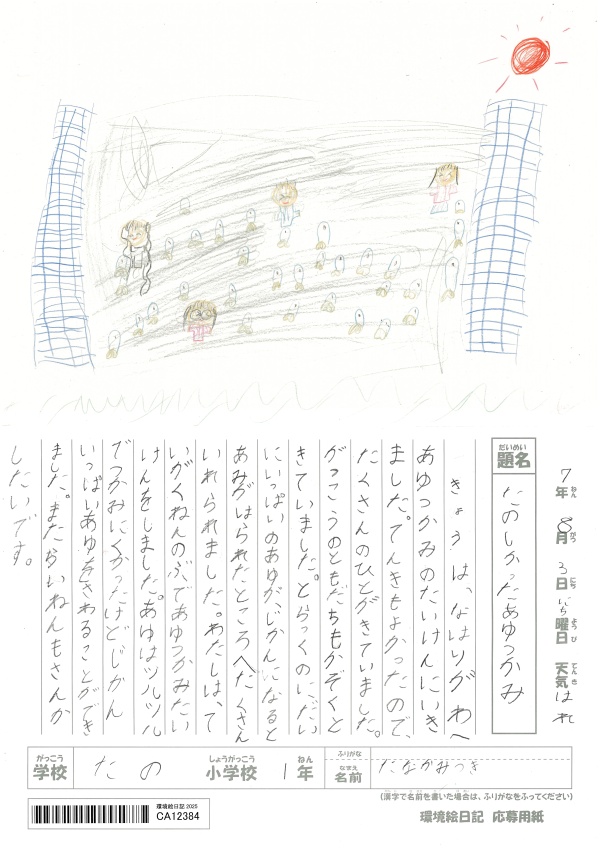 7年 8月 3日 にち曜日 天気 はれ
ねん がつ にち ようび てんき
だいめい
題名 たのしかったあゆつかみ
きょうは、なはりがわへ
あゆつかみのたいけんにいき
ました。てんきもよかったので、
たくさんのひとがきていました。
がっこうのともだちもかぞくと
きていました。とらっくのにだい
にいっぱいのあゆが、じかんになると
あみがはられたところへたくさん
いれられました。わたしは、て
いがくねんのぶであゆつかみたい
けんをしました。あゆはツルツル
でつかみにくかったけどじかん
いっぱいあゆをさわることができ
ました。またらいねんもさんか
したいです。
がっこう しょうがっこう ねん ふりがな
学校 たの 小学校 1年 なまえ 名前 たなかみつき
(漢字で名前を書いた場合は、ふりがなをふってください)
環境絵日記 2025
CA12384
環境絵日記 応募用紙